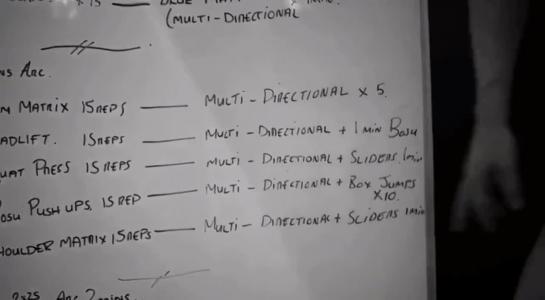 x 15
(MULTI-DIRECTIONAL
ARC.
MATRIX 15 REPS — MULTI-DIRECTIONAL x 5.
ADLIFT. 15 REPS — MULTI-DIRECTIONAL + 1 MIN BOSU
UAT PRESS 15 REPS — MULTI-DIRECTIONAL + SLIDERS 1 MIN
OSU PUSH UPS. 15 REP — MULTI-DIRECTIONAL + BOX JUMPS
x10.
HOULDER MATRIX 15 REPS — MULTI-DIRECTIONAL + SLIDERS 1 MIN
x25 ARC 2 mins.